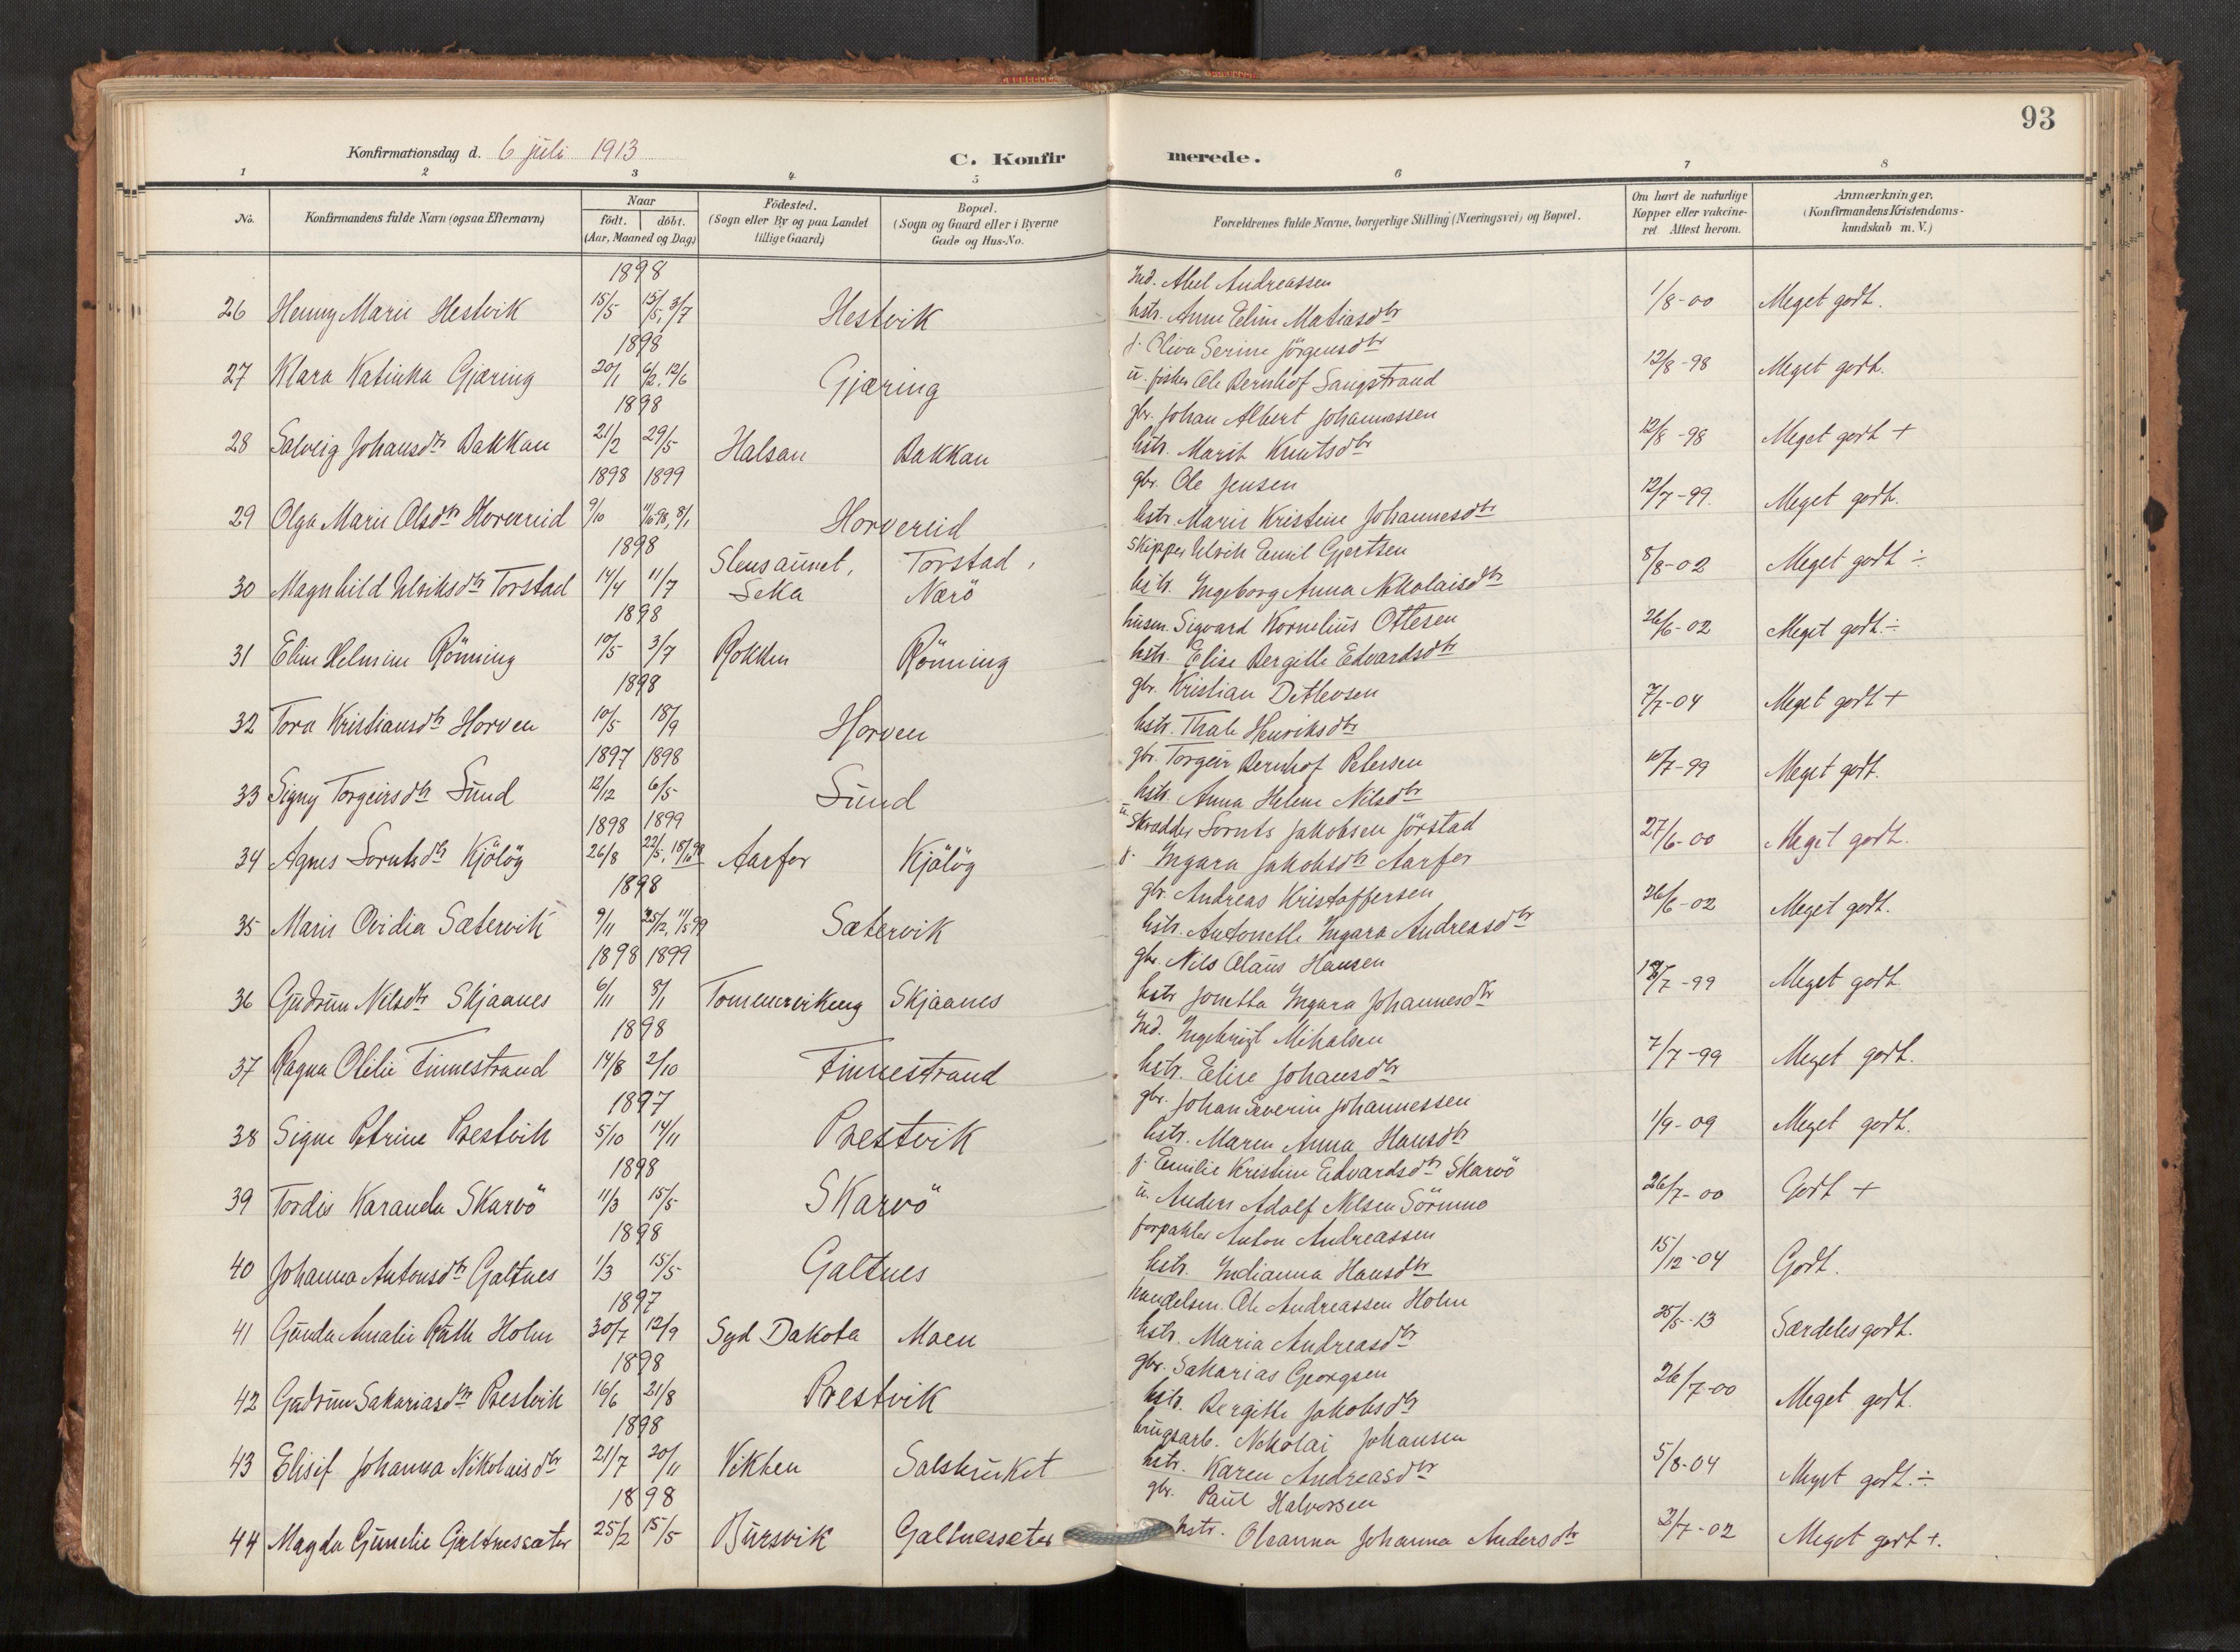 93
Konfirmationsdag d. 6 juli 1913
C. Konfirmerede.
1 2 3 4 5 6 7 8
No.
Konfirmandens fulde Navn (ogsaa Efternavn)
Naar
födt. döbt.
(Aar, Maaned og Dag)
Födested.
(Sogn eller By og paa Landet
tillige Gaard)
Bopæl.
(Sogn og Gaard eller i Byerne
Gade og Hus-No.
Forældrenes fulde Navne, borgerlige Stilling (Næringsvei) og Bopæl.
Om havt de naturlige
Kopper eller vakcine-
ret Attest herom.
Anmærkninger.
(Konfirmandens Kristendoms-
kundskab m. V.)
1898 Ind. Abel Andreassen
26 Henny Marie Hestvik 15/5 15/5, 3/7 Hestvik hstr. Anne Eline Matiasdtr 1/8-00 Meget godt.
1898 f. Oliva Serine Jörgensdtr
27 Klara Katinka Gjæring 20/1 6/2, 12/6 Gjæring u. fisker Ole Bernhof Saugstrand 12/8-98 Meget godt.
1898 gbr. Johan Albert Johannessen
28 Solveig Johansdtr Bakkan 21/2 29/5 Halsan Bakkan hstr. Marit Knutsdtr 12/8-98 Meget godt +
1898 1899 gbr. Ole Jensen
29 Olga Marie Olsdtr Horvereid 9/10 8/1 Horvereid hstr. Marie Kristine Johannesdtr 12/7-99. Meget godt.
1898 Slensaunet, Torstad, Skipper Ulrik Emil Gjertsen
30 Magnhild Ulriksdtr Torstad 14/4 11/7 Leka Nærö hstr. Ingeborg Anna Nikolaisdtr 8/8-02 Meget godt ÷
1898 husm. Sigvard Kornelius Ottesen
31 Eline Helmine Rönning 10/5 3/7 Rokken Rönning hstr. Elise Bergitte Edvardsdtr 26/6-02 Meget godt. ÷
1898 gbr. Kristian Detlevsen
32 Tora Kristiansdtr Horven 10/5 18/9 Horven hstr. Thale Henriksdtr 7/7-04 Meget godt +
1897 1898 gbr. Torgeir Bernhof Petersen
33 Signy Torgeirsdtr Sund 12/12 6/5 Sund hstr. Anna Helene Nilsdtr 10/7-99 Meget godt.
1898 1899 u Skrædder Lornts Jakobsen Jörstad
34 Agnes Lorntsdtr Kjölög 26/8 22/5, Aarfor Kjölög f. Ingara Jakobsdtr Aarfor 27/6-00 Meget godt.
1898 gbr. Andreas Kristoffersen
35 Marie Ovidia Sætervik 9/11 25/12, 11/5 99 Sætervik hstr. Antonette Ingara Andreasdtr 26/6-02 Meget godt.
1898 1899 gbr. Nils Olaus Hansen
36 Gudrun Nilsdtr Skjaanes 6/11 8/1 Tommervikeng Skjaanes hstr Jonetta Ingara Johannesdtr /7-99 Meget godt
1898 Ind. Ingebrigt Mikalsen
37 Ragna Otilie Finnestrand 14/8 2/10 Finnestrand hstr. Elise Johansdtr 7/7-99 Meget godt.
1897 gbr. Johan Severin Johannessen
38 Signe Petrine Prestvik 5/10 14/11 Prestvik hstr. Maren Anna Hansdtr 1/9-09 Meget godt.
1898 f. Emilie Kristine Edvardsdtr Skarvö
39 Tordis Karanda Skarvö 11/3 15/5 Skarvö u. Anders Adolf Nilsen Sörumo 26/7-00 Godt +
1898 forpakter Anton Andreassen
40 Johanna Antonsdtr Galtnes 1/3 15/5 Galtnes hstr. Indianna Hansdtr 15/12-04 Godt.
1897 Handelsm. Ole Andreassen Holm
41 Gunda Amalie Ruth Holm 30/7 12/9 Syd Dakota Moen hstr. Maria Andreasdtr 25/5-13 Særdeles godt.
1898 gbr. Sakarias Georgsen
42 Gudrun Sakariasdtr Prestvik 16/6 21/8 Prestvik hstr. Bergitte Jakobsdtr 26/7-00 Meget godt.
1898 brugsarb. Nikolai Johansen
43 Elisif Johanna Nikolaisdtr 21/7 20/11 Vikken Salsbruket hstr. Karen Andreasdtr 5/8-04 Meget godt. ÷
1898 gbr. Paul Halvorsen
44 Magda Gunelie Galtnessæter 25/2 15/5 Bursvik Galtnessæter hstr. Oleanna Johanna Andersdtr 3/7-02 Meget godt +.